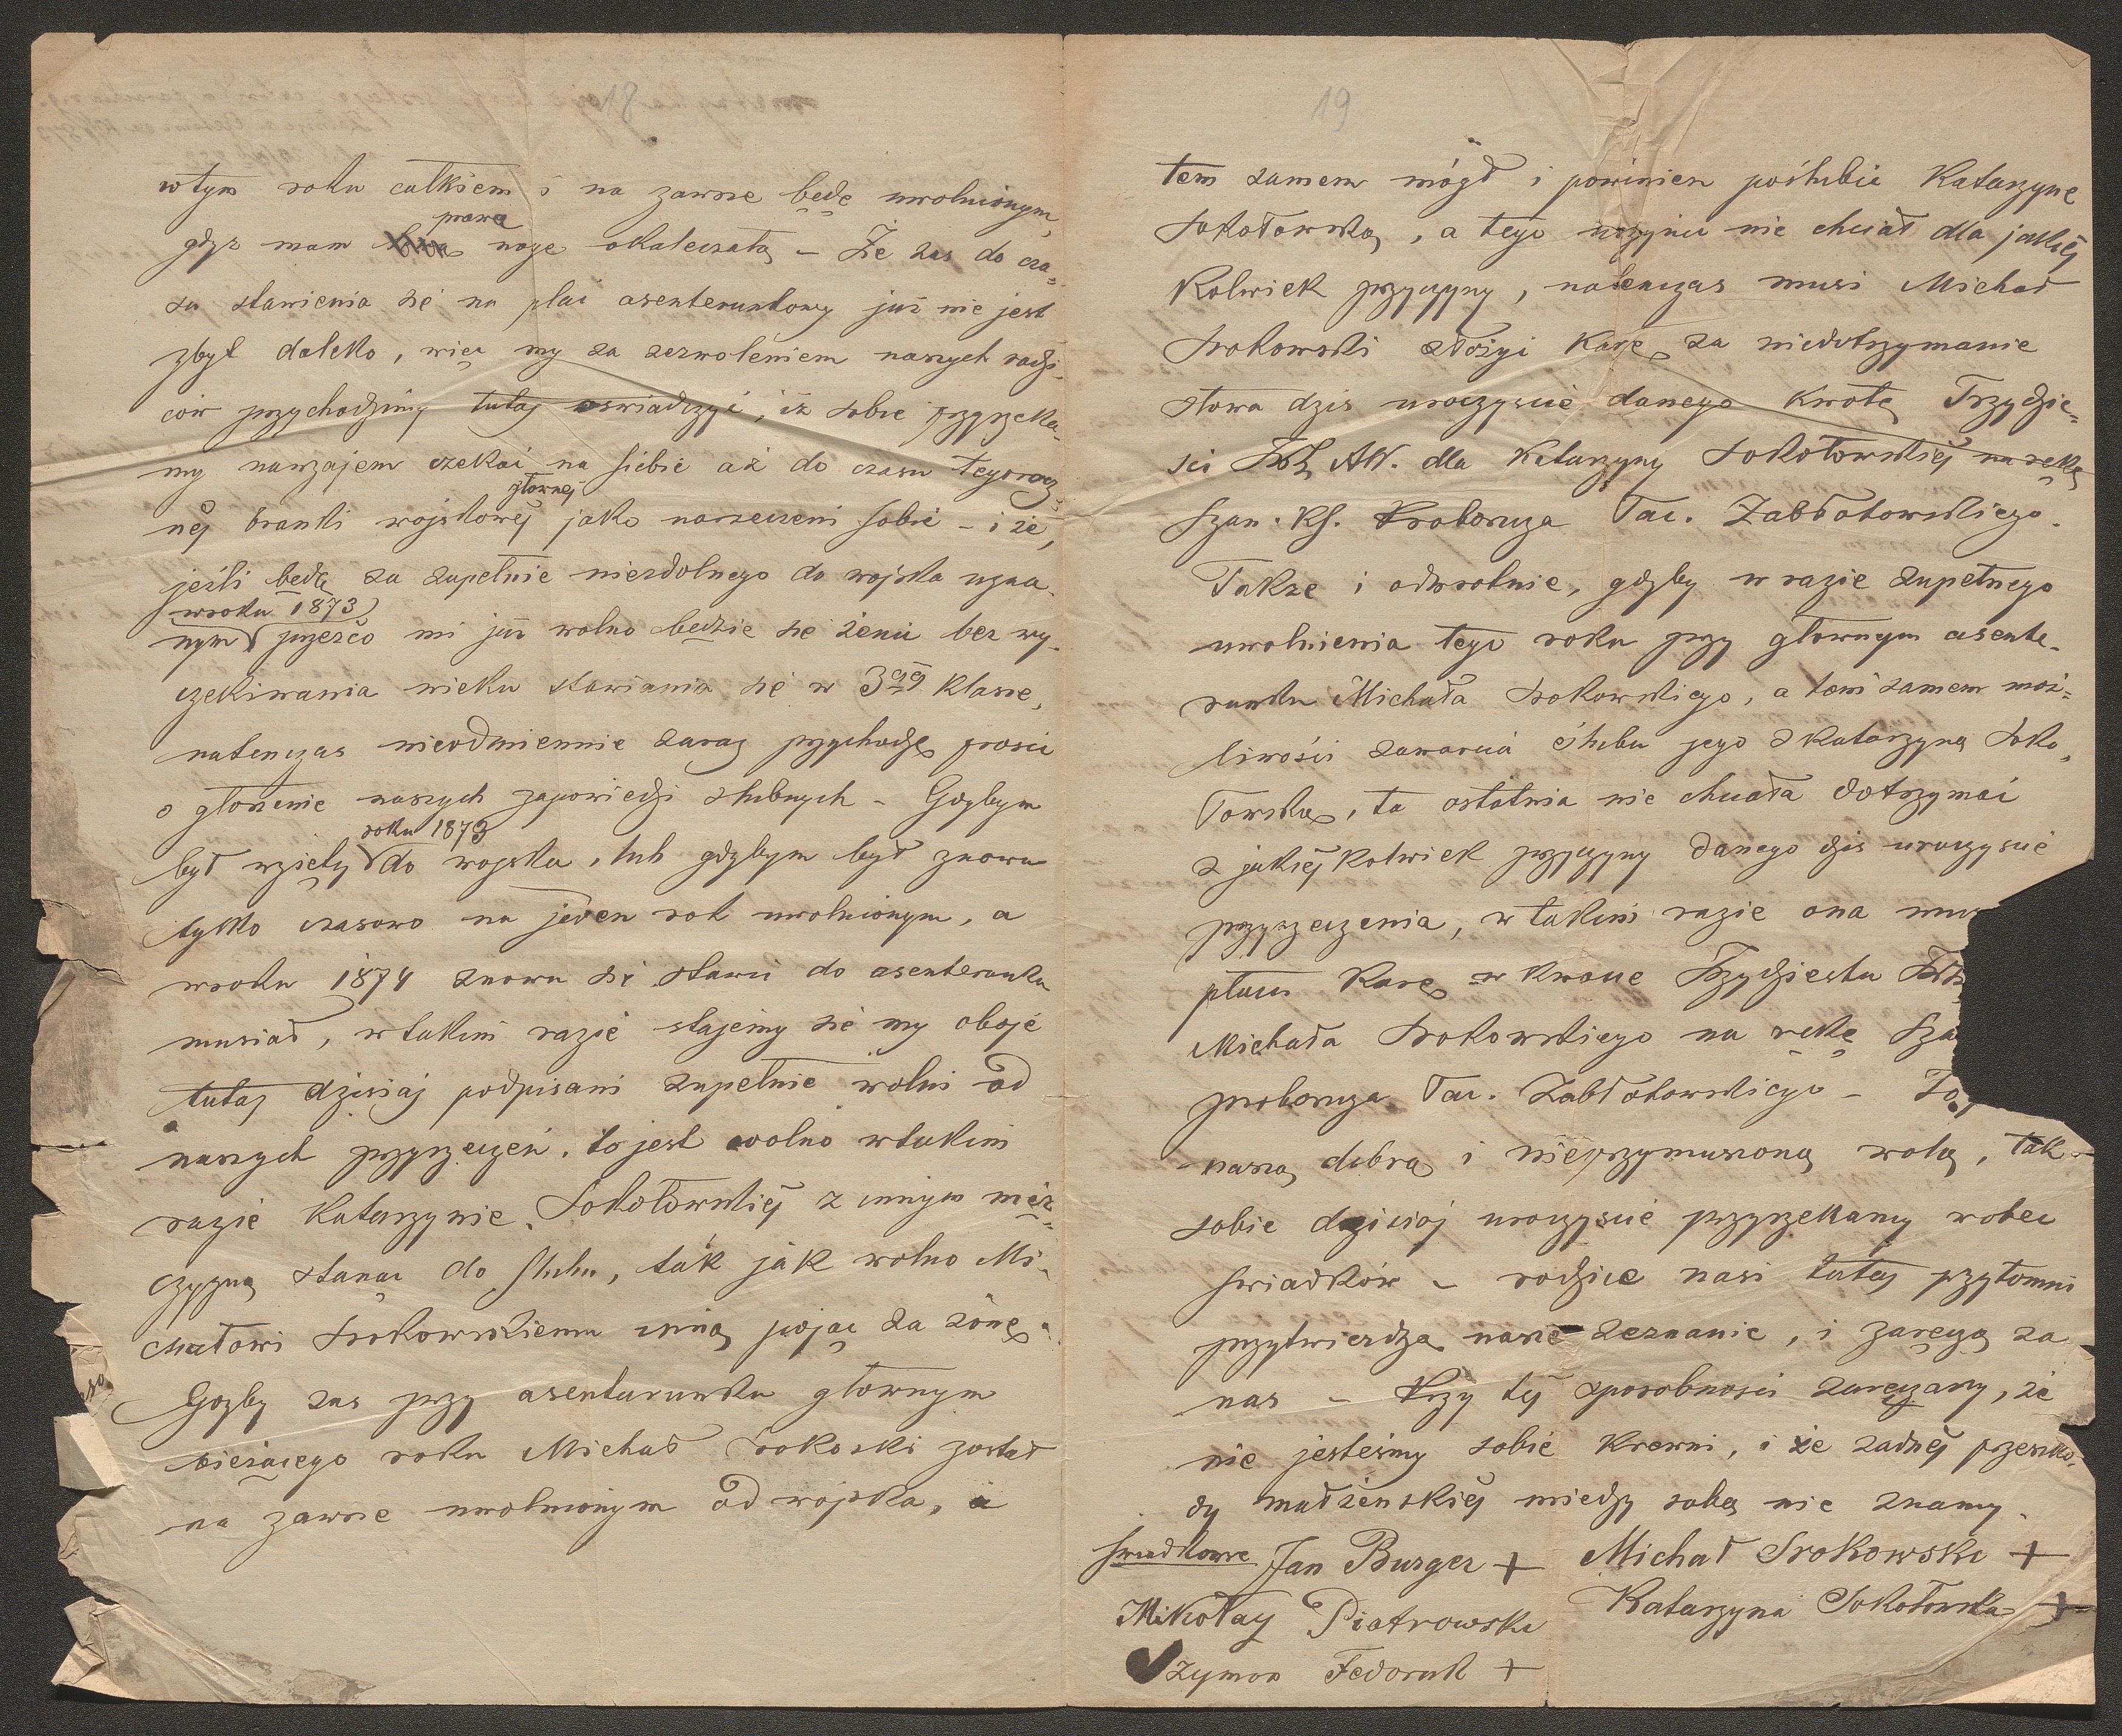 18
w tym roku całkiem i na zawsze będę uwolnionym,
prawą
gdyż mam nogę okaleczałą – Że zas do cza-
su stawienia się na plac asenterunkowy już nie jest
zbyt daleko, więc my za zezwoleniem naszych rodzi-
ców przychodzimy tutaj oswiadczyć, iż sobie przyrzeka-
my nawzajem czekać na siebie aż do czasu tegorocz-
głownej
nėj branki wojskowėj jako narzeczeni sobie – i że,
jeśli będę za zupełnie niezdolnego do wojska uzna-
w roku 1873
nym przezco mi już wolno będzie się żenić bez wy-
czekiwania wieku stawiania się w 3ciej klasie,
natenczas nieodmiennie zaraz przychodzę prosić
o głoszenie naszych zapowiedzi slubnych – Gdybym
roku 1873
był wzięty do wojska, lub gdybym był znowu
tylko czasowo na jeden rok uwolnionym, a
w roku 1874 znowu się stawić do asenterunku
musiał, w takim razie stajemy się my oboje
tutaj dzisiaj podpisani zupełnie wolni od
naszych przyrzeczeń. to jest wolno w takim
razie Katarzynie Sokołowskiėj z innym męż-
czyzną stanąc do slubu, tak jak wolno Mi-
chałowi Srokowskiemu inną pojąc za żonę.
Gdyby zas przy asenterunku głownym
bieżącego roku Michał Srokoski został
na zawsze uwolnionym od wojska, a
19
tem samem mógł i powinien poślubić Katarzynę
Sokołowską, a tego uczynić nie chciał dla jakiėj
kolwiek przyczyny, natenczas musi Michał
Srokowski złożyć karę za niedotrzymanie
słowa dzis uroczyscie danego kwotę Trzydzie-
sci AW. dla Katarzyny Sokołowskiėj na rękę
Szan. Ks. Proboszcza Łac. Zabłotowskiego.
Także i odwrotnie, gdyby w razie zupełnego
uwolnienia tego roku przy głownym asente-
runku Michała Srokowskiego, a tem samem moż-
liwości zawarcia ślubu jego z Katarzyną Soko-
łowską, ta ostatnia nie chciała dotrzymać
z jakiėjkolwiek przyczyny danego dzis uroczyscie
przyrzeczenia, w takim razie ona mus
płacić karę w kwocie Trzydziestu
Michała Srokowskiego na rękę Sza
proboszcza Łac. Zabłotowskiego –
naszą dobrą i nieprzymuszoną wolą, tak
sobie dzisiaj uroczyscie przyrzekamy wobec
swiadków – rodzice nasi tutaj przytomni
przytwierdzą nasze zeznanie, i zaręczą za
nas – Przy tėj sposobnosci zaręczamy, że
nie jesteśmy sobie krewni, i że żadnėj przeszko-
dy małżenskiėj miedzy sobą nie znamy.
Swiadkowie Jan Burger + Michał Srokowski +
Mikołay Piotrowski Katarzyna Sokołowska +
Szymon Fedoruk +